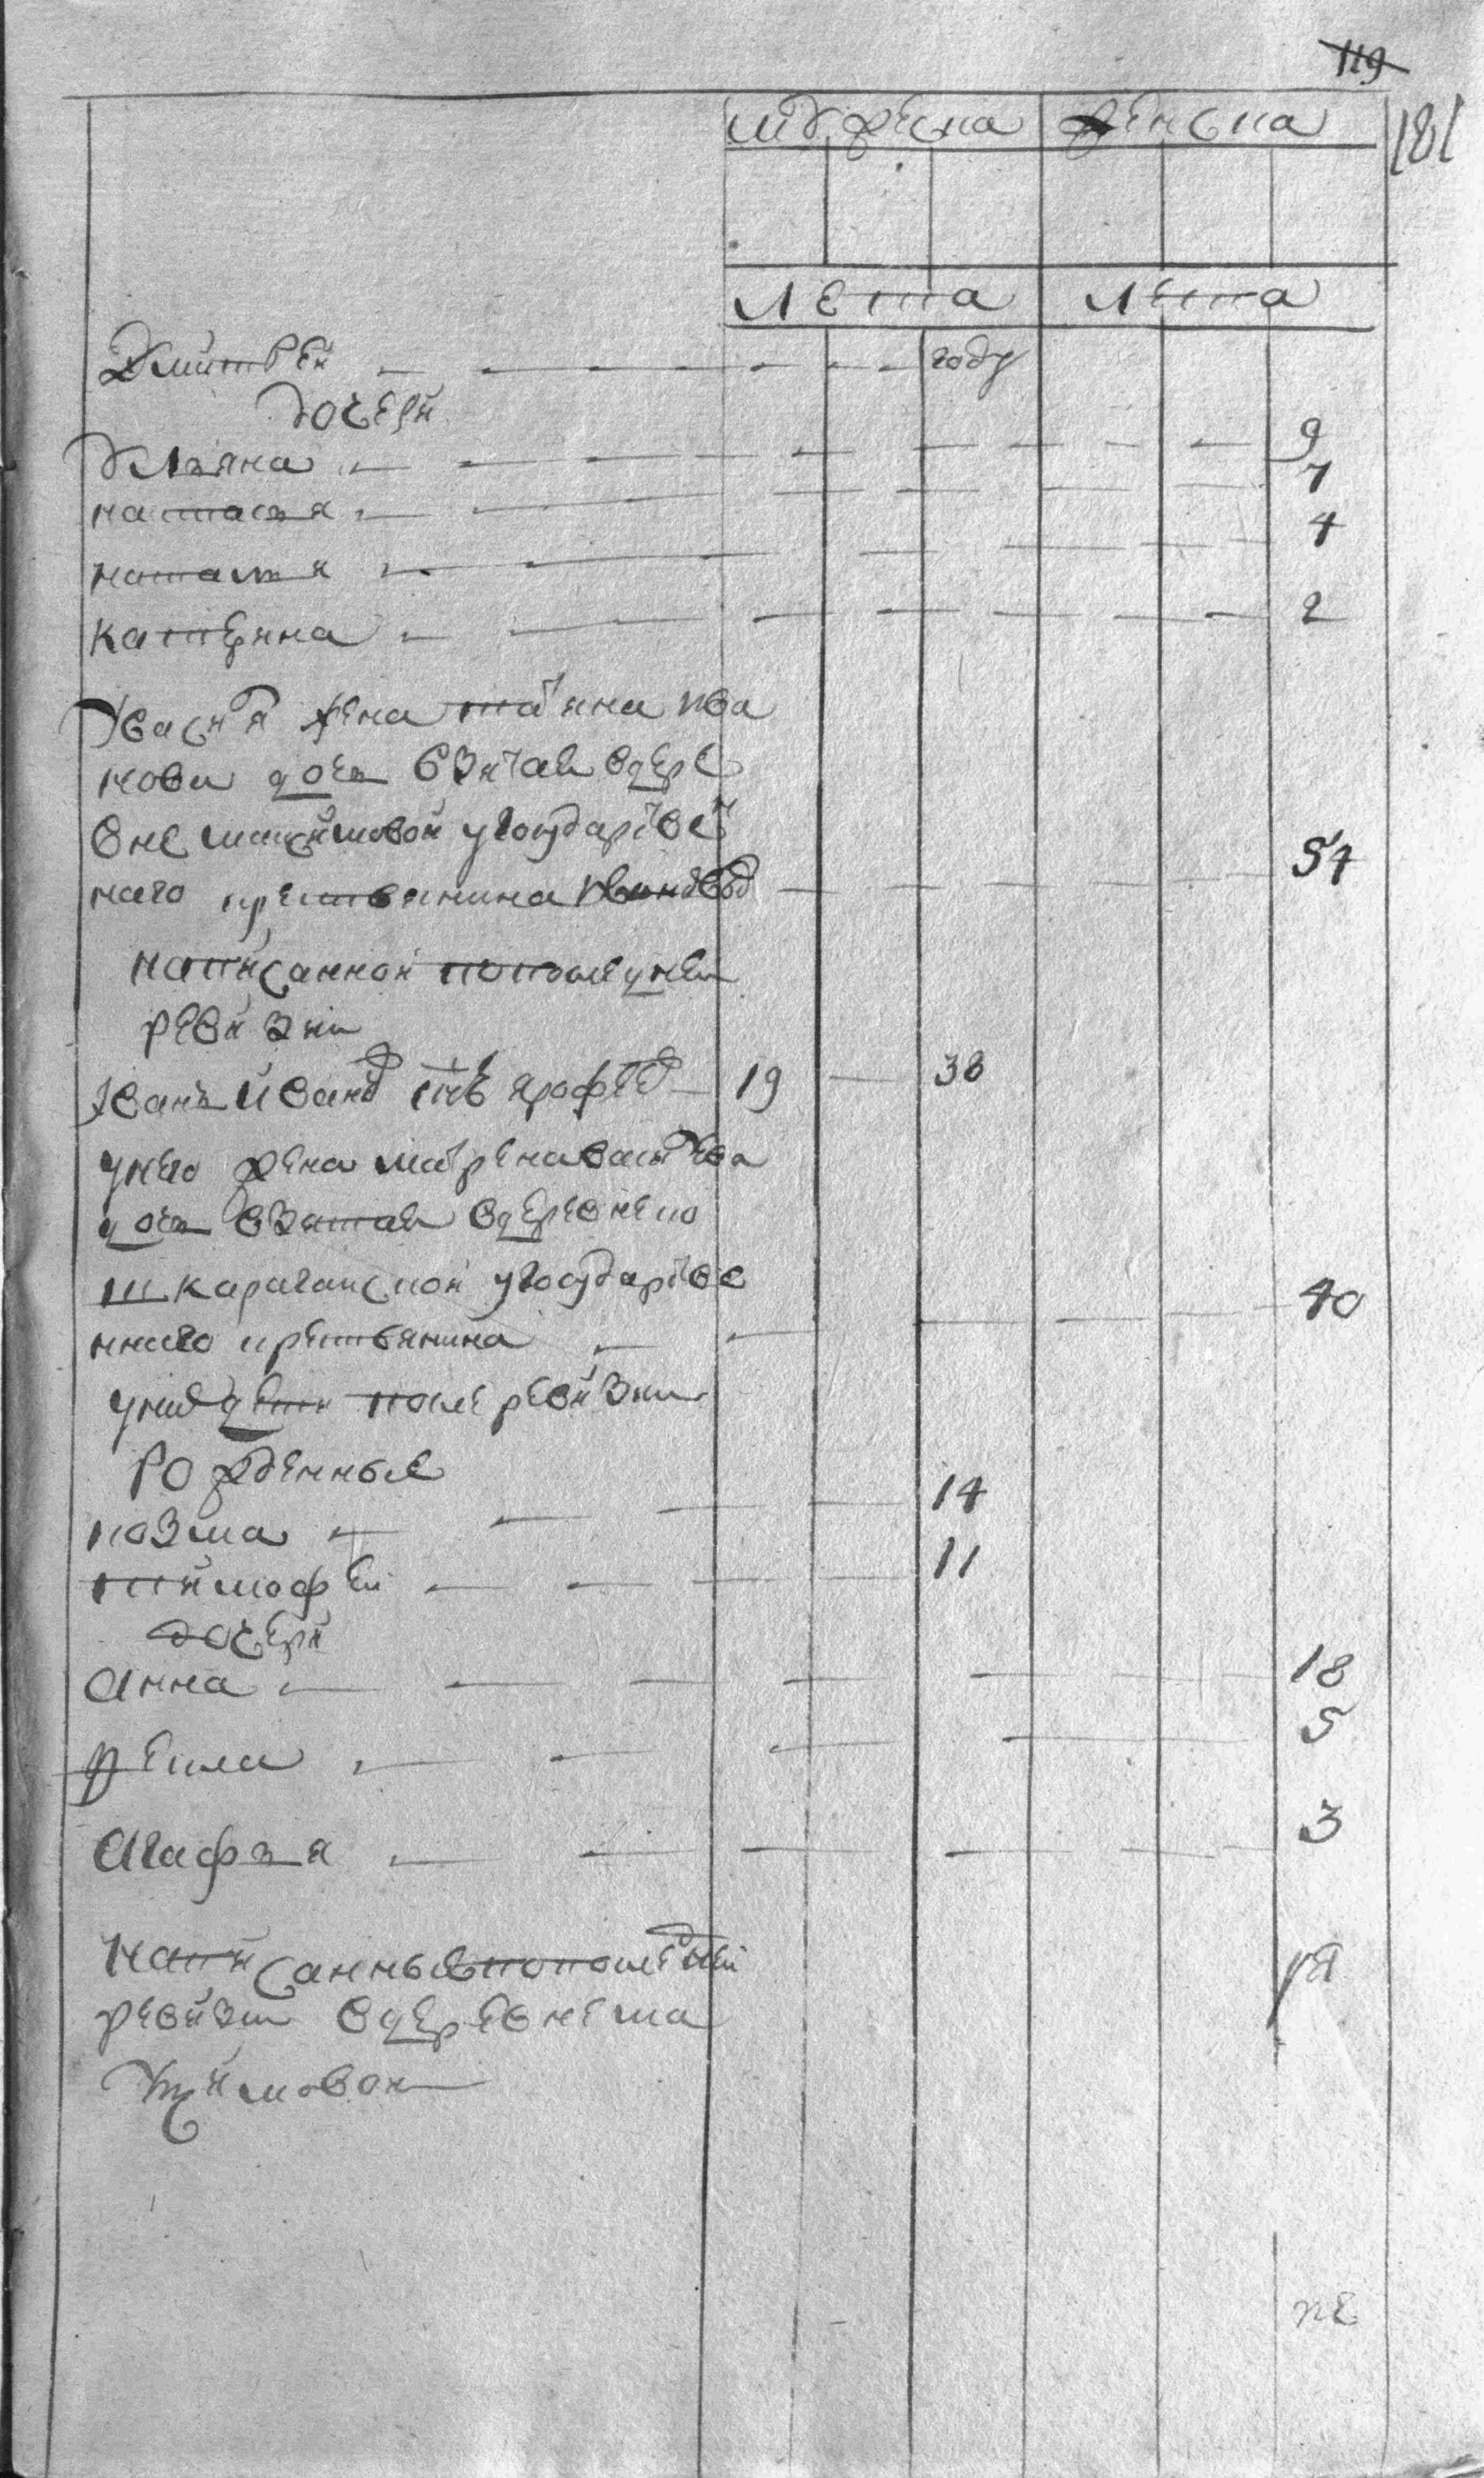 119
181
мужеска женска
лета лета
Дмитрей — году
дочери
Ульяна — 9
настасья — 7
наталья — 4
катерина — 2
Увасия жена татьяна ива
нова дочь взятая вдере
вне максимовой угосударстве
наго крестьянина — 54
написанной попоследней
ревизии
Iванъ иванов снъ ярофеев — 19 — 38
унего жена матрена васильева
дочь взятая вдеревне по
карагайской угосударстве
ннаго крестьянина — 40
уних дети после ревизии
рожденные
козма — 14
тимофей — 11
дочери
Анна — 18
фекла — 5
Агафья — 3
написанныя попоследней
ревизии вдеревне ма
ксимовой